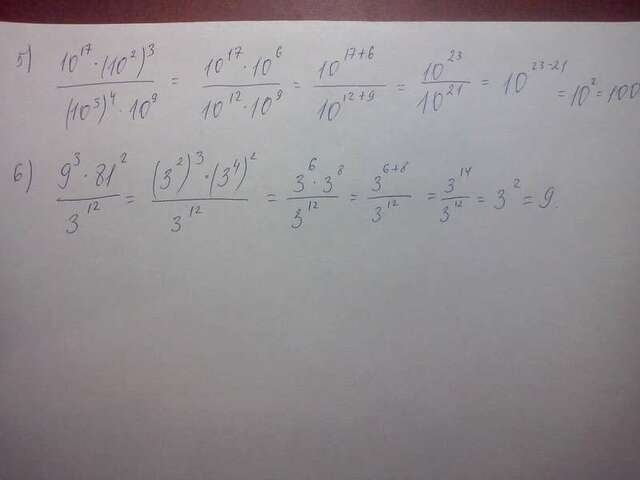 5) (10^17 · (10^2)^3) / ((10^3)^4 · 10^9) = (10^17 · 10^6) / (10^12 · 10^9) = 10^(17+6) / 10^(12+9) = 10^23 / 10^21 = 10^(23-21) = 10^2 = 100
6) (9^3 · 81^2) / 3^12 = ((3^2)^3 · (3^4)^2) / 3^12 = (3^6 · 3^8) / 3^12 = 3^(6+8) / 3^12 = 3^14 / 3^12 = 3^2 = 9.